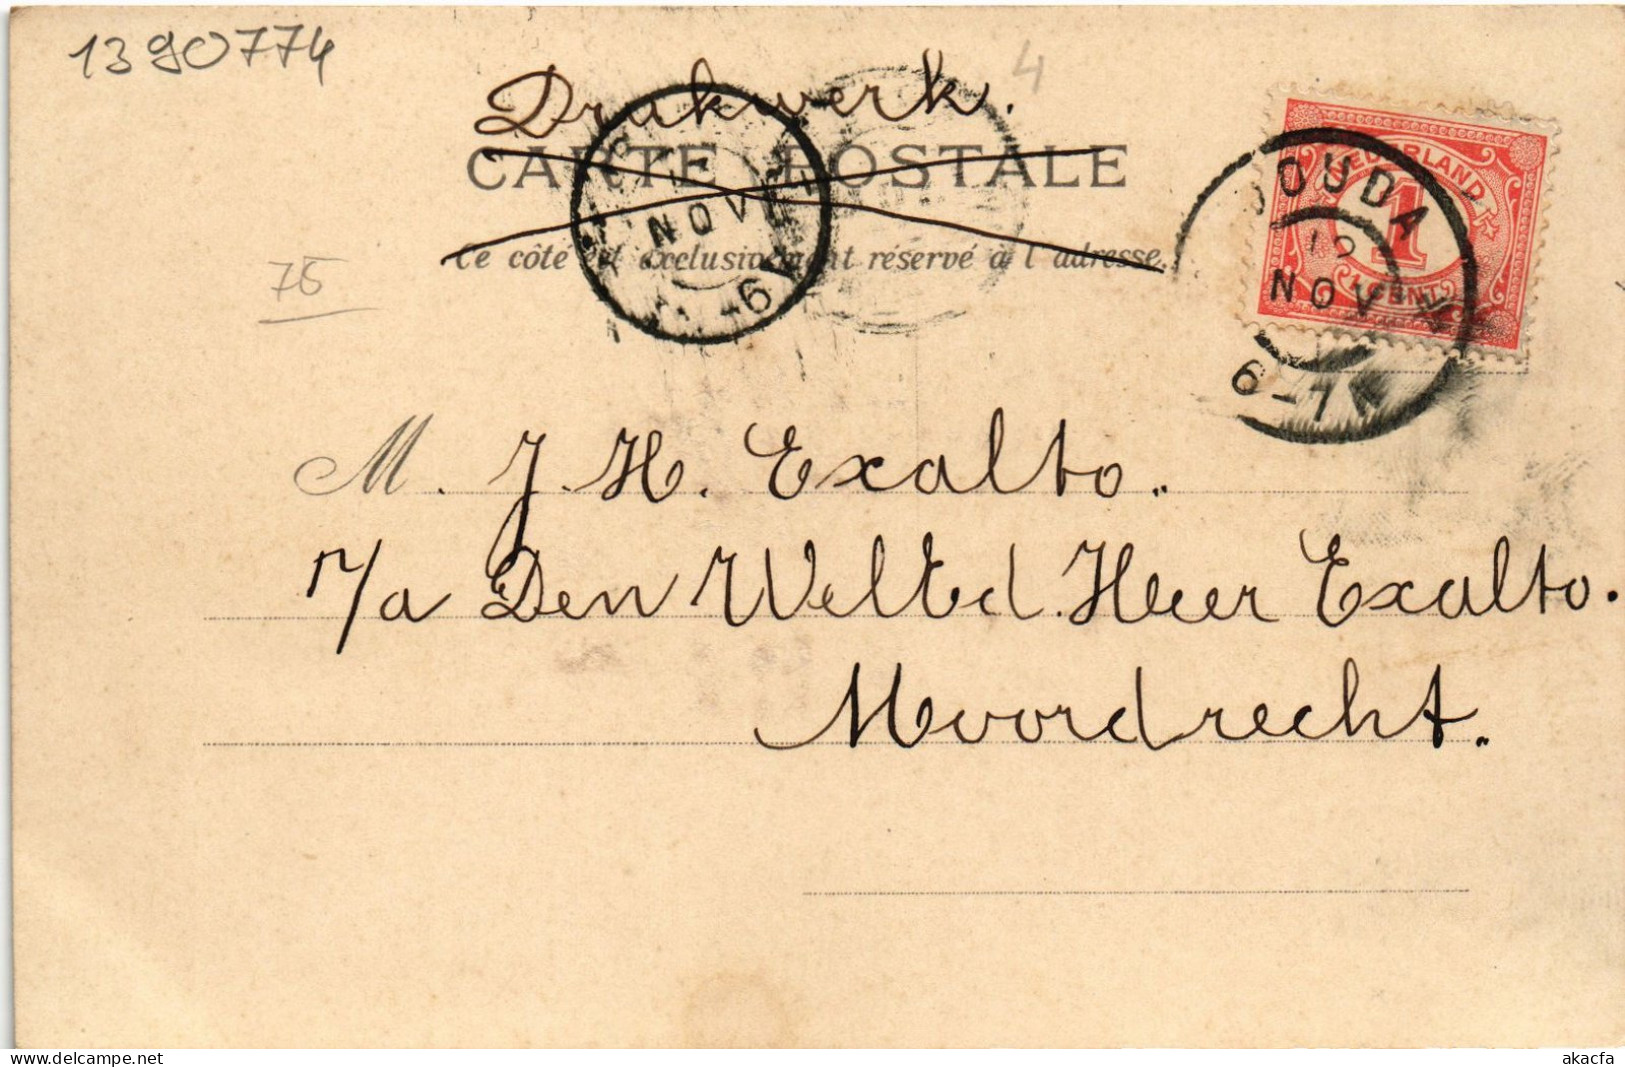 1390774
4
Drukwerk.
CARTE POSTALE
Ce côté est exclusivement réservé à l'adresse.
NOV
75
NEDERLAND
1
1 CENT
GOUDA
NOV
6-7
M. J. H. Exalto.
p/a Den Weled. Heer Exalto.
Moordrecht.
www.delcampe.net
akacfa